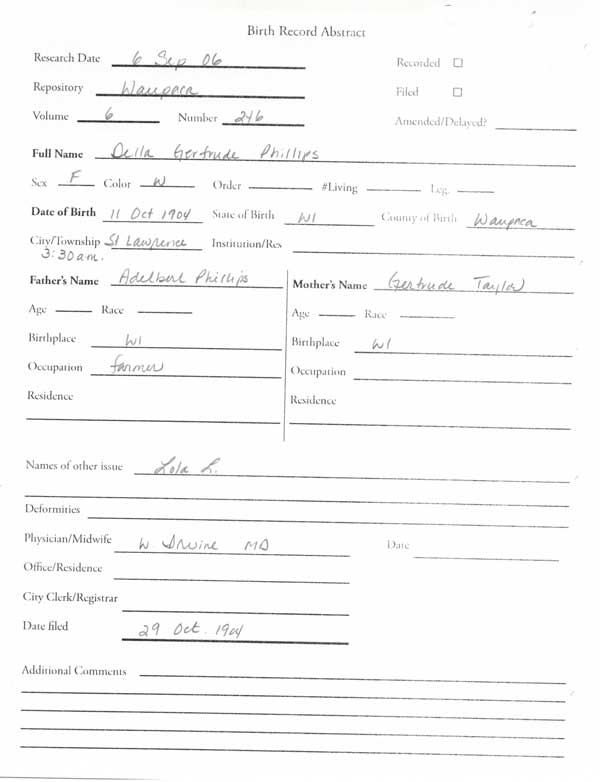 Birth Record Abstract
Research Date 6 Sep 06 Recorded
Repository Waupaca Filed
Volume 6 Number 246 Amended/Delayed?
Full Name Della Gertrude Phillips
Sex F Color W Order #Living Leg.
Date of Birth 11 Oct 1904 State of Birth WI County of Birth Waupaca
City/Township St Lawrence Institution/Res
3:30 a.m.
Father's Name Adelbert Phillips Mother's Name Gertrude Taylor
Age Race Age Race
Birthplace WI Birthplace WI
Occupation farmer Occupation
Residence Residence
Names of other issue Lola L.
Deformities
Physician/Midwife W Irvine MD Date
Office/Residence
City Clerk/Registrar
Date filed 29 Oct. 1904
Additional Comments